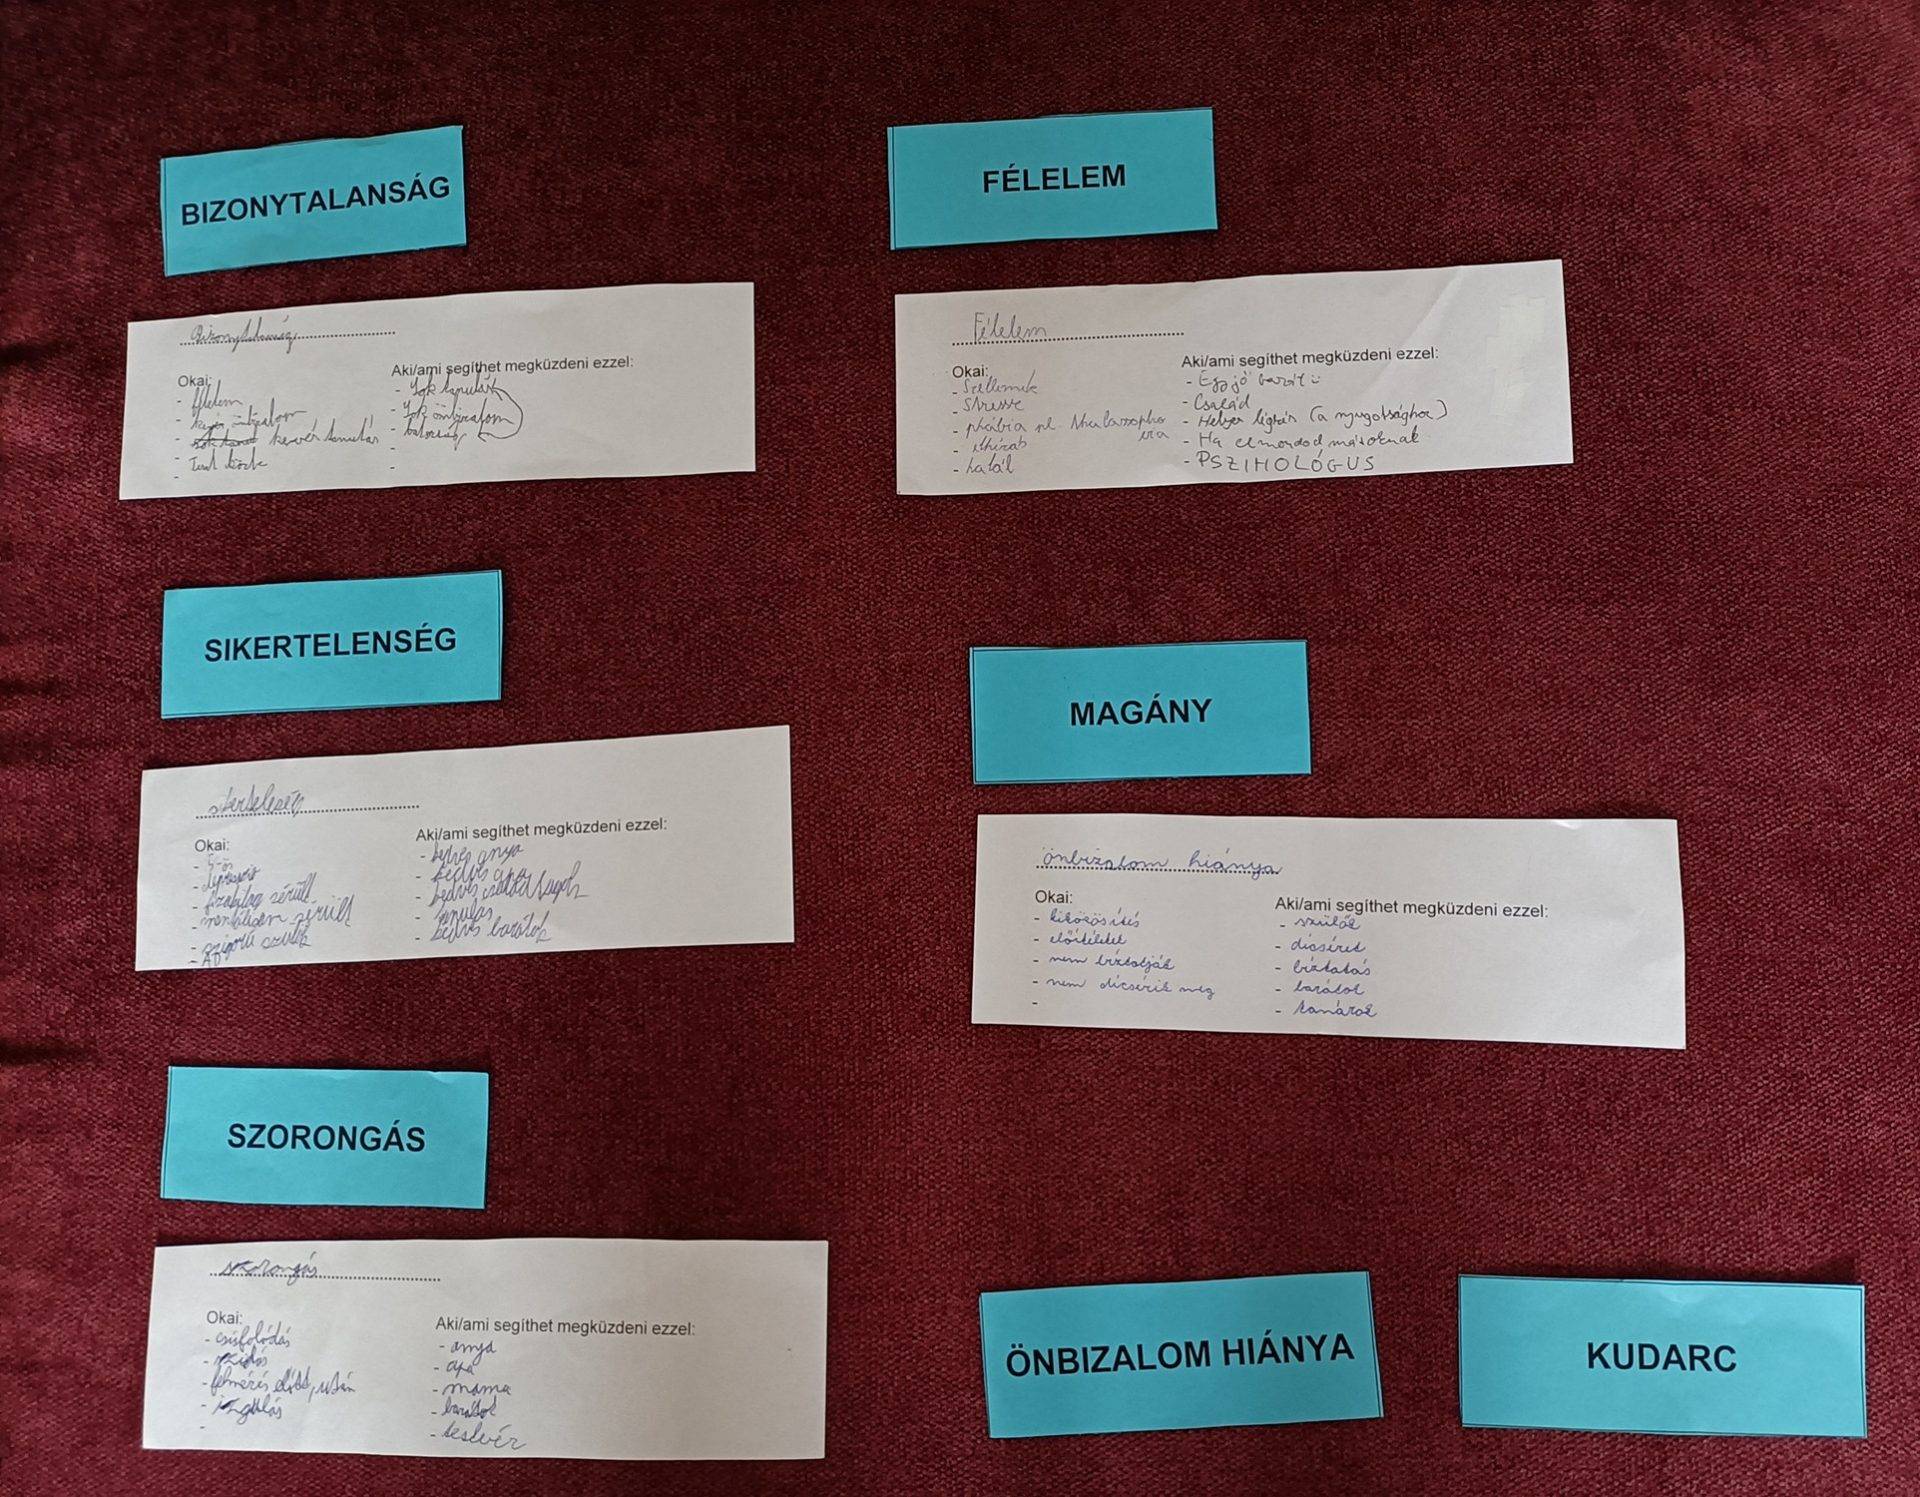 BIZONYTALANSÁG
Bizonytalanság
Okai:
- félelem
- kevés önbizalom
- kevés tanulás
-
Aki/ami segíthet megküzdeni ezzel:
- Sok tanulás
- Sok önbizalom
- bátorság
-
-
FÉLELEM
Félelem
Okai:
- Szellemek
- Stressz
- phóbia pl. Thalassopho
- halál
Aki/ami segíthet megküzdeni ezzel:
- Egy jó barát
- Család
- Helyes légzés (a nyugotsághoz)
- Ha elmondod másoknak
- PSZIHOLÓGUS
SIKERTELENSÉG
sikerteleség
Okai:
- depresszió
- fizikailag sérült
- mentálisan sérült
- szigorú szülők
Aki/ami segíthet megküzdeni ezzel:
- kedves anya
- kedves apa
- kedves családtagok
- tanulás
- kedves barátok
MAGÁNY
önbizalom hiánya
Okai:
- kiközösítés
- előítéletek
- nem bíztatják
- nem dícsérik meg
-
Aki/ami segíthet megküzdeni ezzel:
- szülők
- dícséret
- bíztatás
- barátok
- tanárok
SZORONGÁS
szorongás
Okai:
- csúfolódás
- felmérés előtt, után
- izgulás
-
Aki/ami segíthet megküzdeni ezzel:
- anya
- apa
- mama
- barátok
- testvér
ÖNBIZALOM HIÁNYA
KUDARC